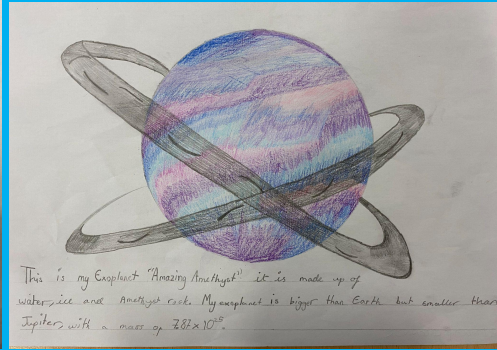 This is my Exoplanet "Amazing Amethyst" it is made up of
water, ice and Amethyst rock. My exoplanet is bigger than Earth but smaller than
Jupiter, with a mass of 7.87 × 10²⁵.